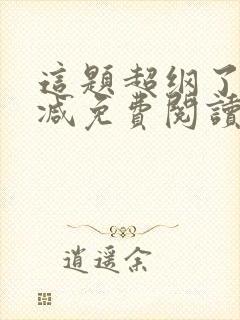 這題超綱了
減免費閱讀
逍遙余